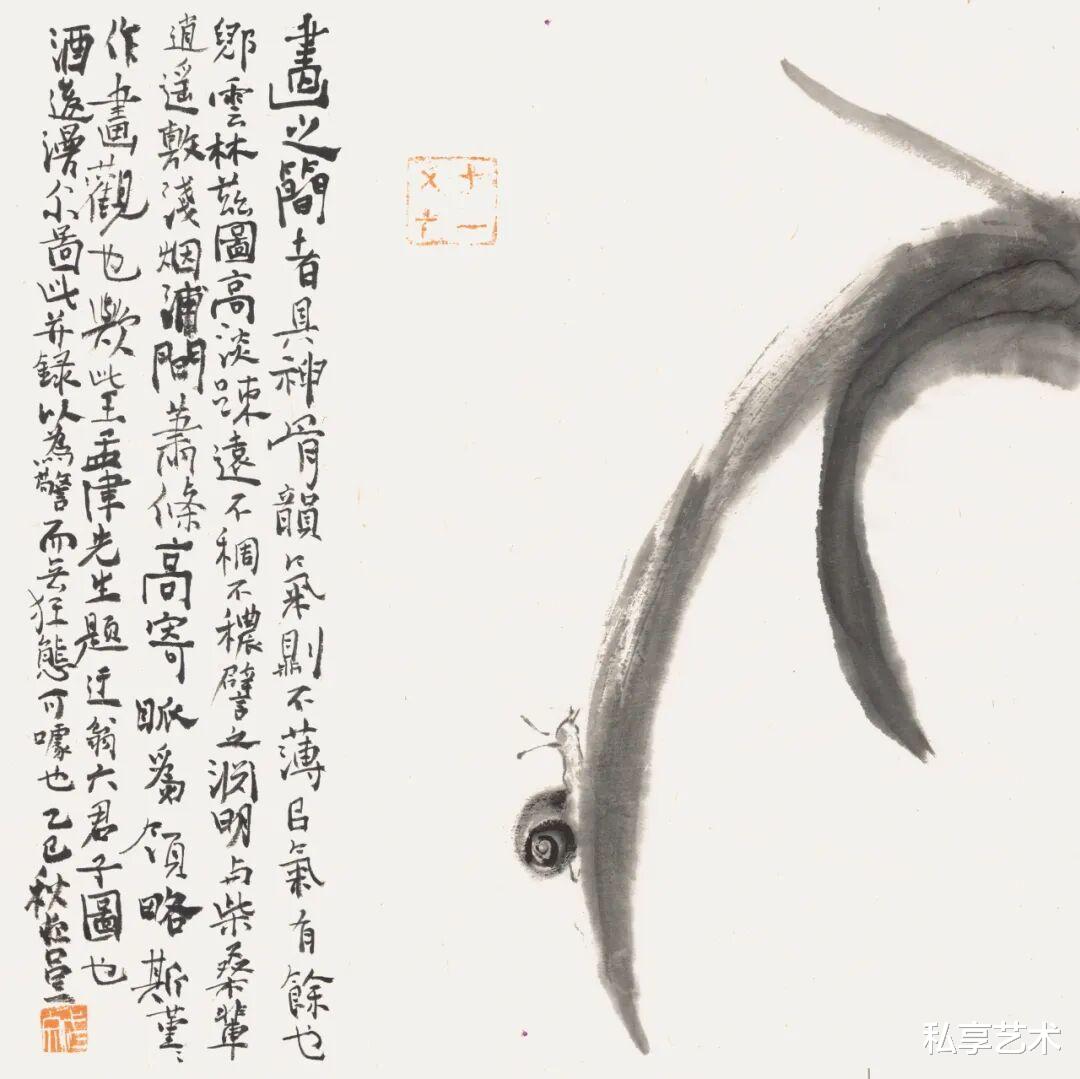 畫之簡者具神骨韻氣則不薄日氣有餘也
鄉雲林茲圖高淡踈遠不稠不穠譬之淵明与柴桑輩
逍遥敷淺烟浦間蕭條高寄眽爲領略斯堇〻
作畫觀也歟此王孟津先生題迂翁六君子圖也
酒邊漫尓圖此并録以為警而无狂態可噱也乙巳秋
十一
私享艺术